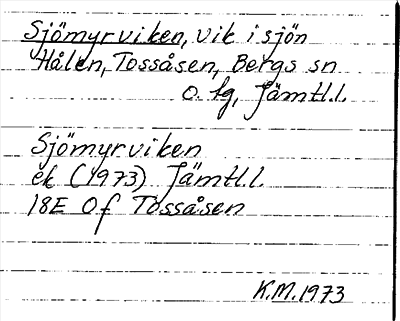 Sjömyrviken, vik i sjön
Hålen, Tossåsen, Bergs sn
o. tg, Jämtl.l.
Sjömyrviken
ek (1973) Jämtl.l.
18E 0f Tossåsen
K.M. 1973